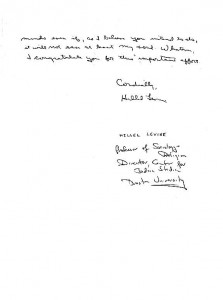 minds soon if, as I believe you intend to do,
it will not soon at least my word. Whatever,
I congratulate you for this important effort
Cordially,
Hillel Levine
HILLEL LEVINE
Professor of Sociology &
Religion
Director, Center for
Judaic Studies
Boston University